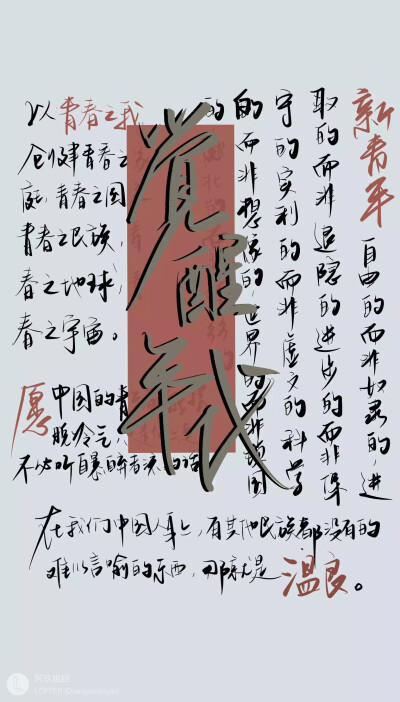 新青年
自由的而非奴隶的,进
取的而非退隐的进步的而非保
守的实利的而非虚文的科学
的而非想像的世界的而非锁国
的
覺醒年代
以青春之我,
创建青春之
庭,青春之国
青春之民族,
春之地球,
春之宇宙。
愿中国的青
脱冷气,
不必听自暴自弃者流的话
在我们中国人身上,有其他民族都没有的
难以言喻的东西,那就是温良。
LOFTER